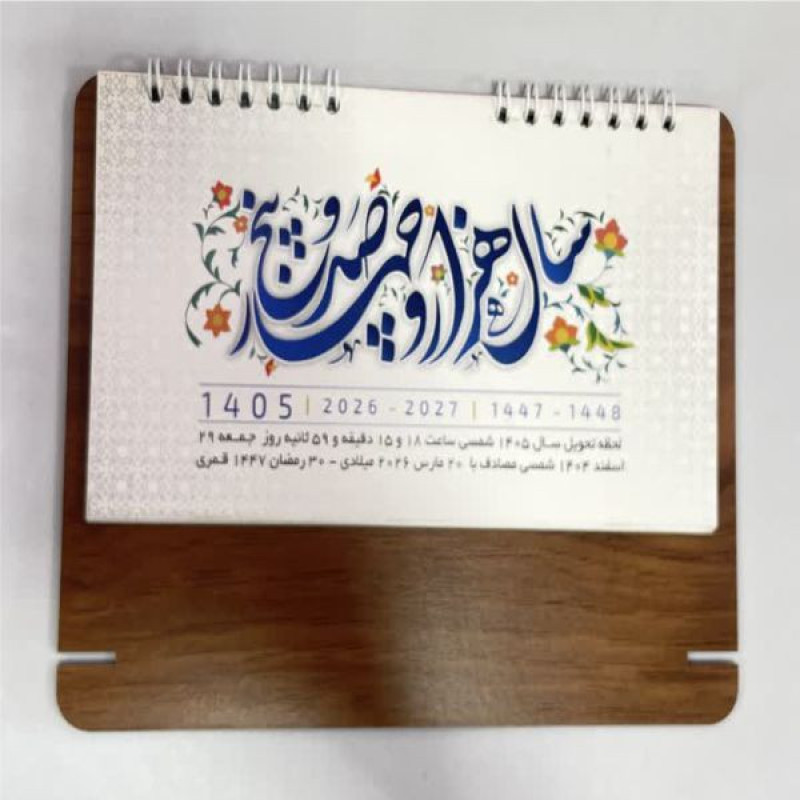 سال هزار و چهارصد و پنج
1405 | 2026 - 2027 | 1447 - 1448
لحظه تحویل سال ۱۴۰۵ شمسی ساعت ۱۸ و ۱۵ دقیقه و ۵۹ ثانیه روز جمعه ۲۹
اسفند ۱۴۰۴ شمسی مصادف با ۲۰ مارس ۲۰۲۶ میلادی - ۳۰ رمضان ۱۴۴۷ قمری